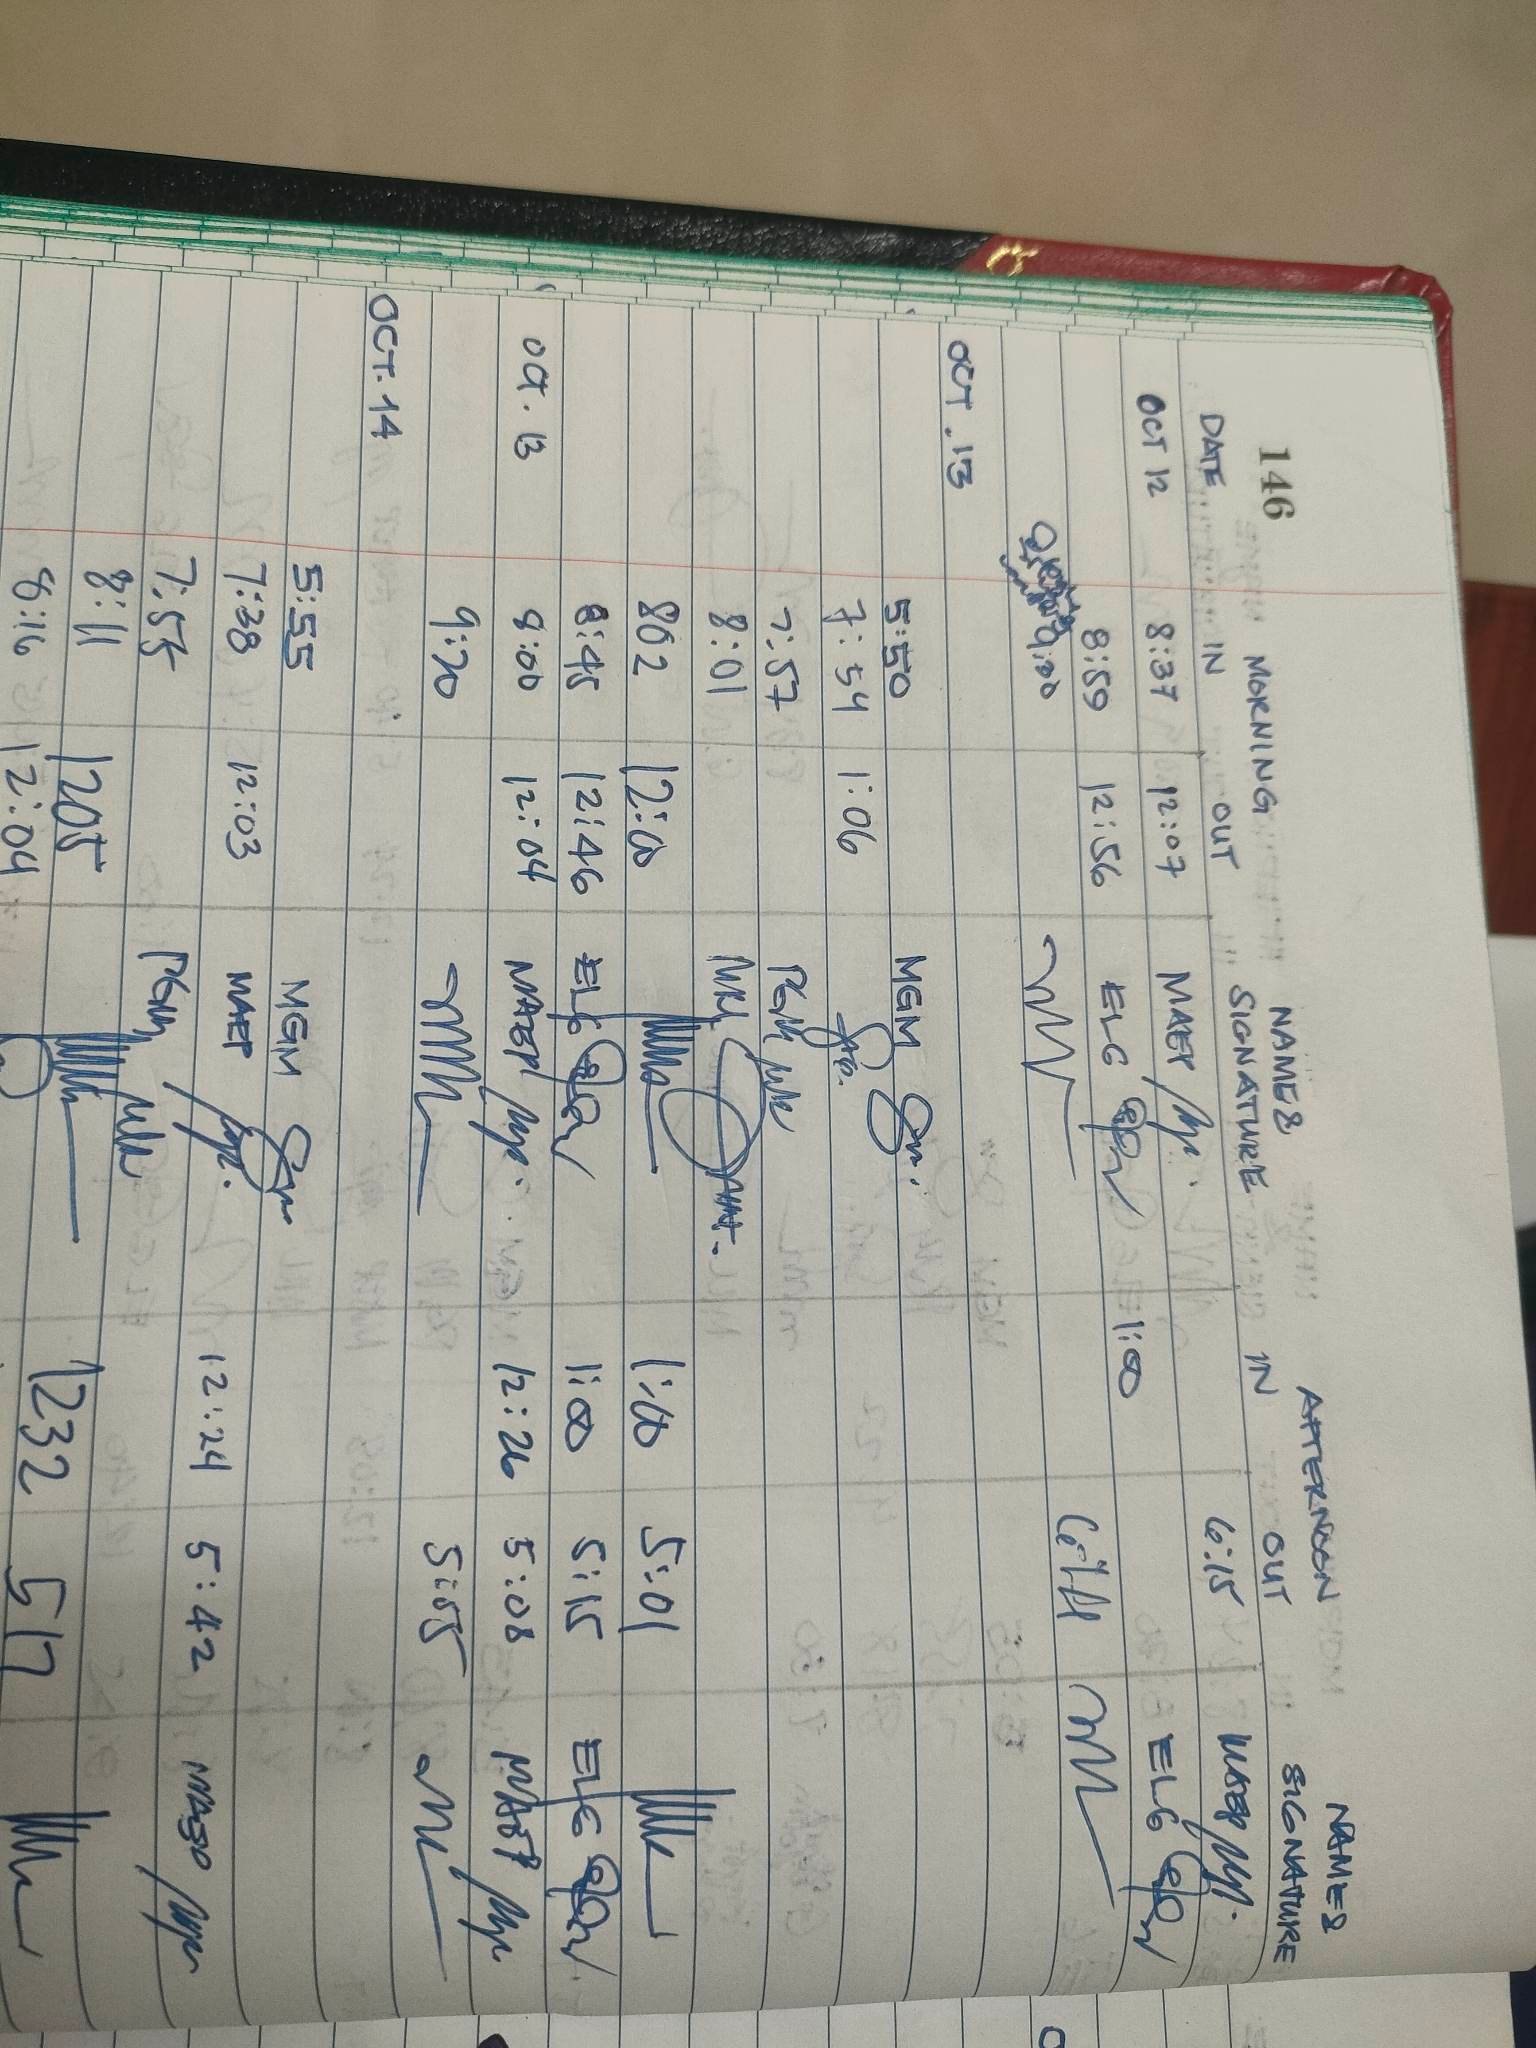 146
MORNING AFTERNOON
DATE IN OUT NAME & SIGNATURE IN OUT NAME & SIGNATURE
OCT 12 8:37 12:07 MAEP 6:15 MAEP
8:59 12:56 ELG 1:00 ELG
9:00
OCT. 13
5:50 MGM
7:54 1:06
7:57 PGM
8:01
802 12:00 1:00 5:01
8:45 12:46 ELG 1:00 5:15 ELG
OCT. 13 8:00 12:04 MAEP 12:26 5:08 MAEP
9:20 5:55
OCT. 14
5:55 MGM
7:38 12:03 MAEP 12:24 5:42 MAEP
7:55 PGM
8:11 1205 1232 517
8:16 12:04